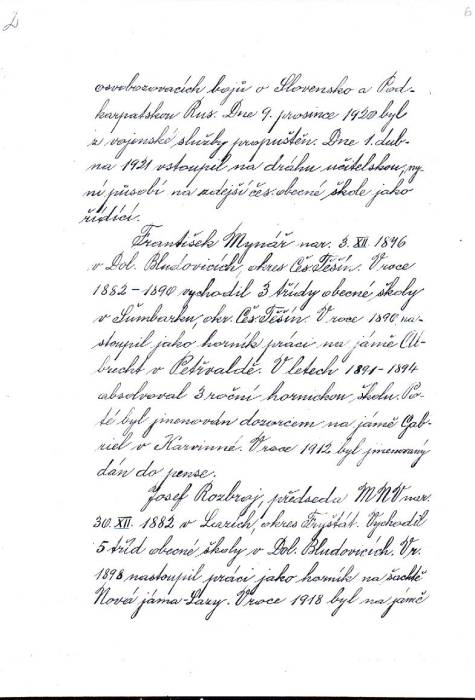 2
6
osvobozovacích bojů o Slovensko a Pod-
karpatskou Rus. Dne 9. prosince 1920 byl
z vojenské služby propuštěn. Dne 1. dub-
na 1921 vstoupil na dráhu učitelskou, ny-
ní působí na zdejší čes. obecné škole jako
řídící.
František Mynář nar. 3. XII. 1876
v Dol. Bludovicích, okres Čes. Těšín. V roce
1882 - 1890 vychodil 3 třídy obecné školy
v Šumbarku, okr. Čes. Těšín. V roce 1890, na-
stoupil jako horník práci na jámě Al-
brecht v Petřvaldě. V letech 1891 - 1894
absolvoval 3 roční hornickou školu. Po-
té byl jmenován dozorcem na jámě Gab-
riel v Karvinné. V roce 1912 byl jmenovaný
dán do pense.
Josef Rozbroj, předseda MNV nar.
30. XII. 1882 v Lazích, okres Fryštát. Vychodil
5 tříd obecné školy v Dol. Bludovicích. V r.
1898 nastoupil práci jako horník na šachtě
Nová jáma - Lazy. V roce 1918 byl na jámě